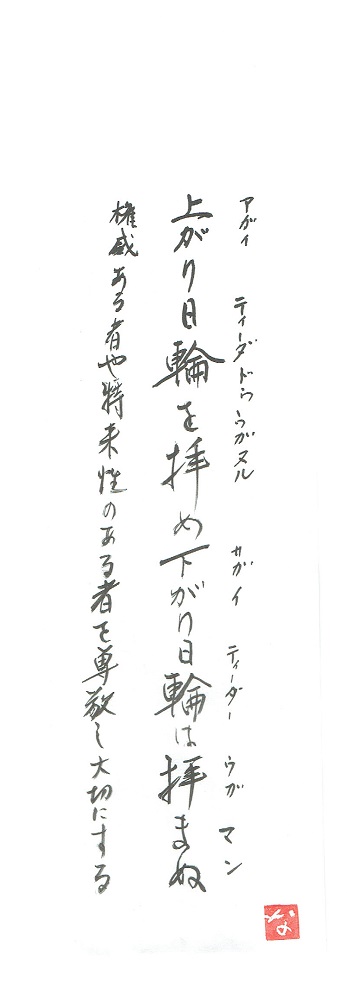 アガイ ティーダドゥ ウガヌル サガイ ティーダー ウガマン
上がり日輪を拝め下がり日輪は拝まぬ
権威ある者や特来性のある者を尊敬し大切にする
な